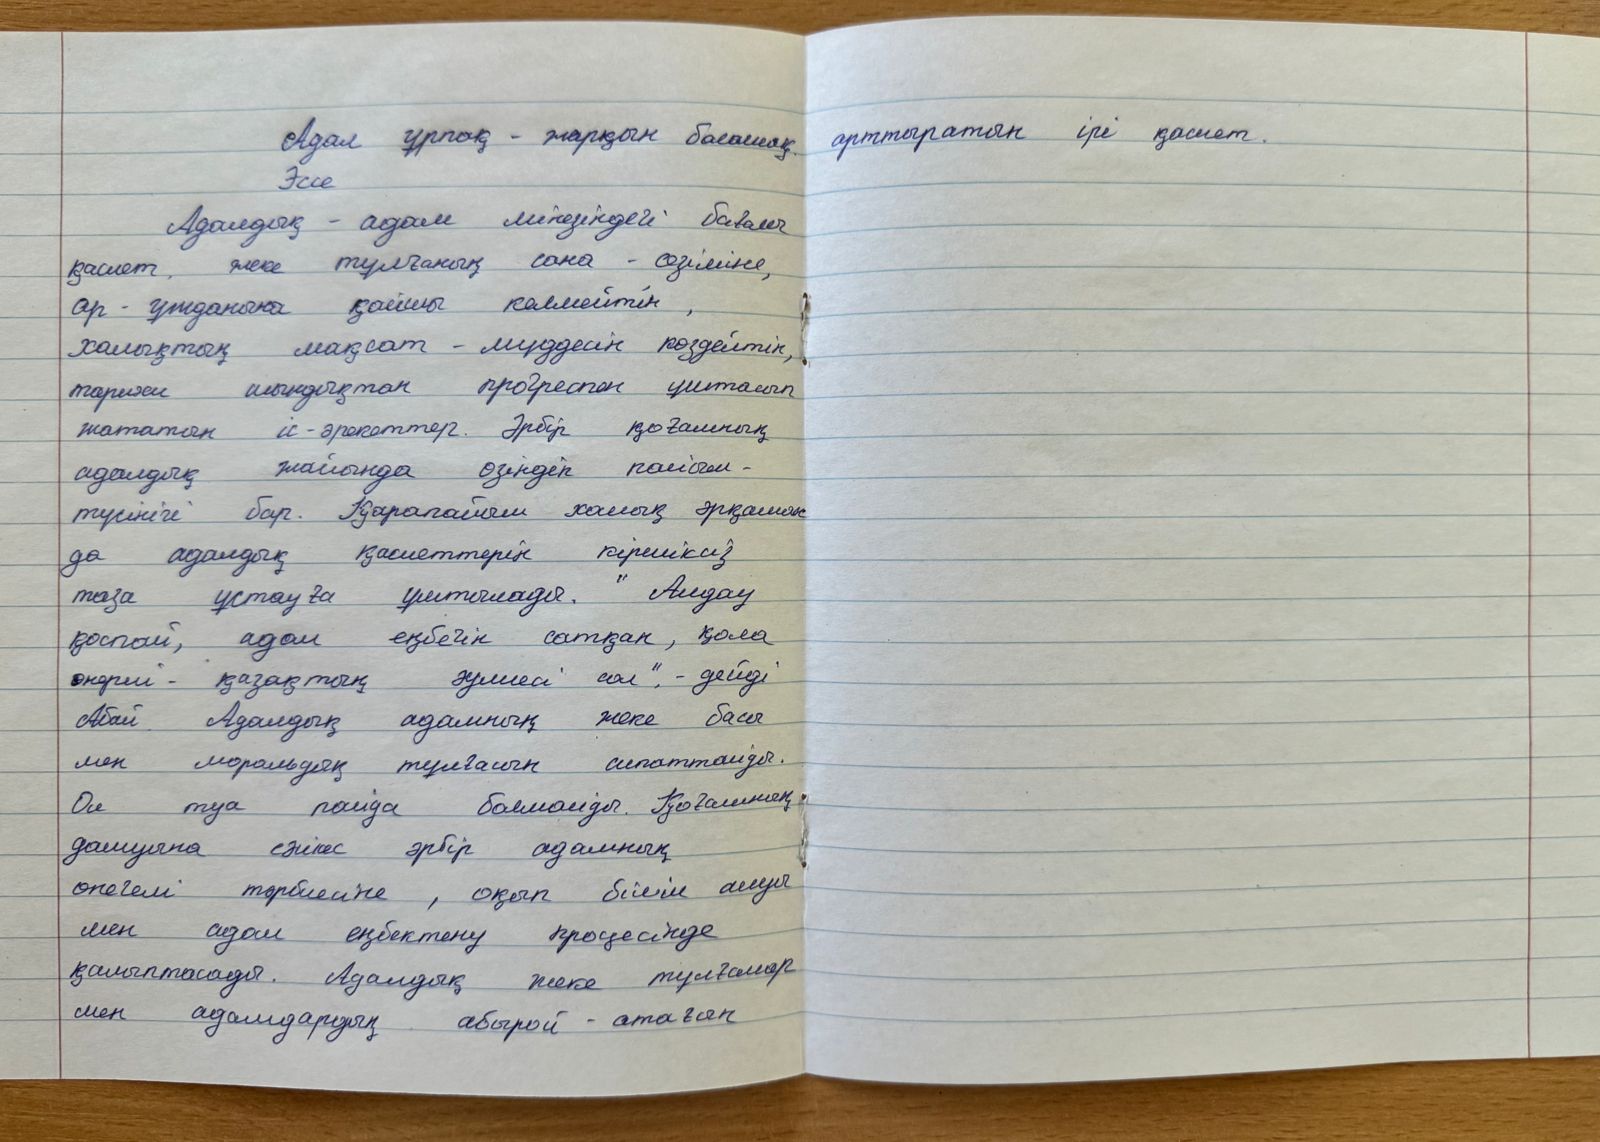 Адал ұрпақ - жарқын болашақ.
Эссе
Адалдық - адам мінезіндегі бағалы
қасиет, жеке тұлғаның сана - сезіміне,
ар - ұжданына қайшы келмейтін,
халықтың мақсат - мүддесін көздейтін,
тарихи шындықпен прогреспен ұштасып
жататын іс-әрекеттер. Әрбір қоғамның
адалдық жайында өзіндік пайым -
түсінігі бар. Қарапайым халық әрқашан
да адалдық қасиеттерін кіршіксіз
таза ұстауға ұмтылады. "Алдау
қоспай, адал еңбегін сатқан, қола
өнерлі - қазақтың әулиесі сол", - дейді
Абай. Адалдық адамның жеке басы
мен моральдық тұлғасын сипаттайды.
Ол туа пайда болмайды. Қоғамның
дамуына сәйкес әрбір адамның
өнегелі тәрбиесіне, оқып білім алуы
мен адал еңбектену процесінде
қалыптасады. Адалдық жеке тұлғалар
мен адамдардың абырой - атағын
арттыратын ірі қасиет.